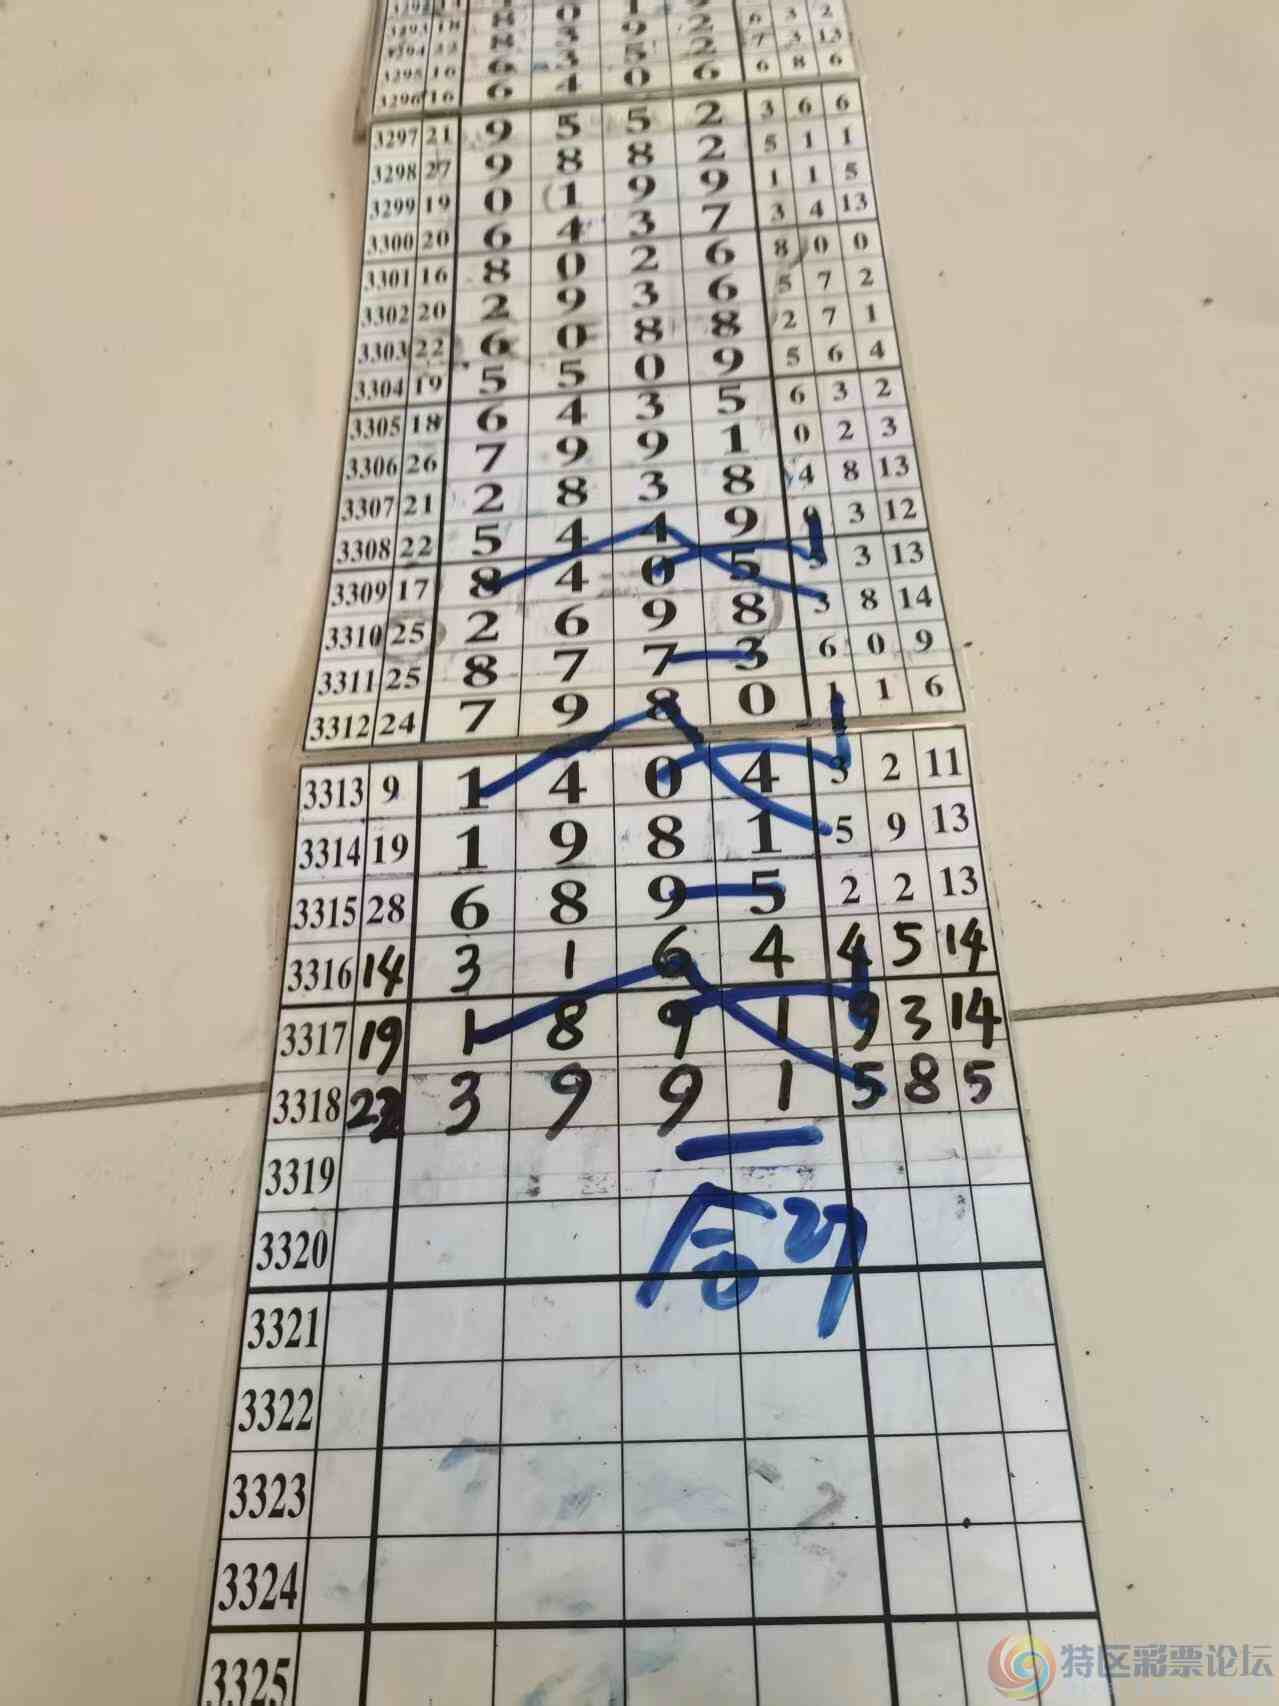 3293 18 8 3 9 2 6 3 2
3294 22 8 3 5 2 7 3 13
3295 16 6 3 5 2 6 8 6
3296 16 6 4 0 6
3297 21 9 5 5 2 3 6 6
3298 27 9 8 8 2 5 1 1
3299 19 0 1 9 9 1 1 5
3300 20 6 4 3 7 3 4 13
3301 16 8 0 2 6 8 0 0
3302 20 2 9 3 6 5 7 2
3303 22 6 0 8 8 2 7 1
3304 19 5 5 0 9 5 6 4
3305 18 6 4 3 5 6 3 2
3306 26 7 9 9 1 0 2 3
3307 21 2 8 3 8 4 8 13
3308 22 5 4 4 9 9 3 12
3309 17 8 4 0 5 5 3 13
3310 25 2 6 9 8 3 8 14
3311 25 8 7 7 3 6 0 9
3312 24 7 9 8 0 1 1 6
3313 9 1 4 0 4 3 2 11
3314 19 1 9 8 1 5 9 13
3315 28 6 8 9 5 2 2 13
3316 14 3 1 6 4 4 5 14
3317 19 1 8 9 1 9 3 14
3318 22 3 9 9 1 5 8 5
3319
3320
合27
3321
3322
3323
3324
3325
特区彩票论坛